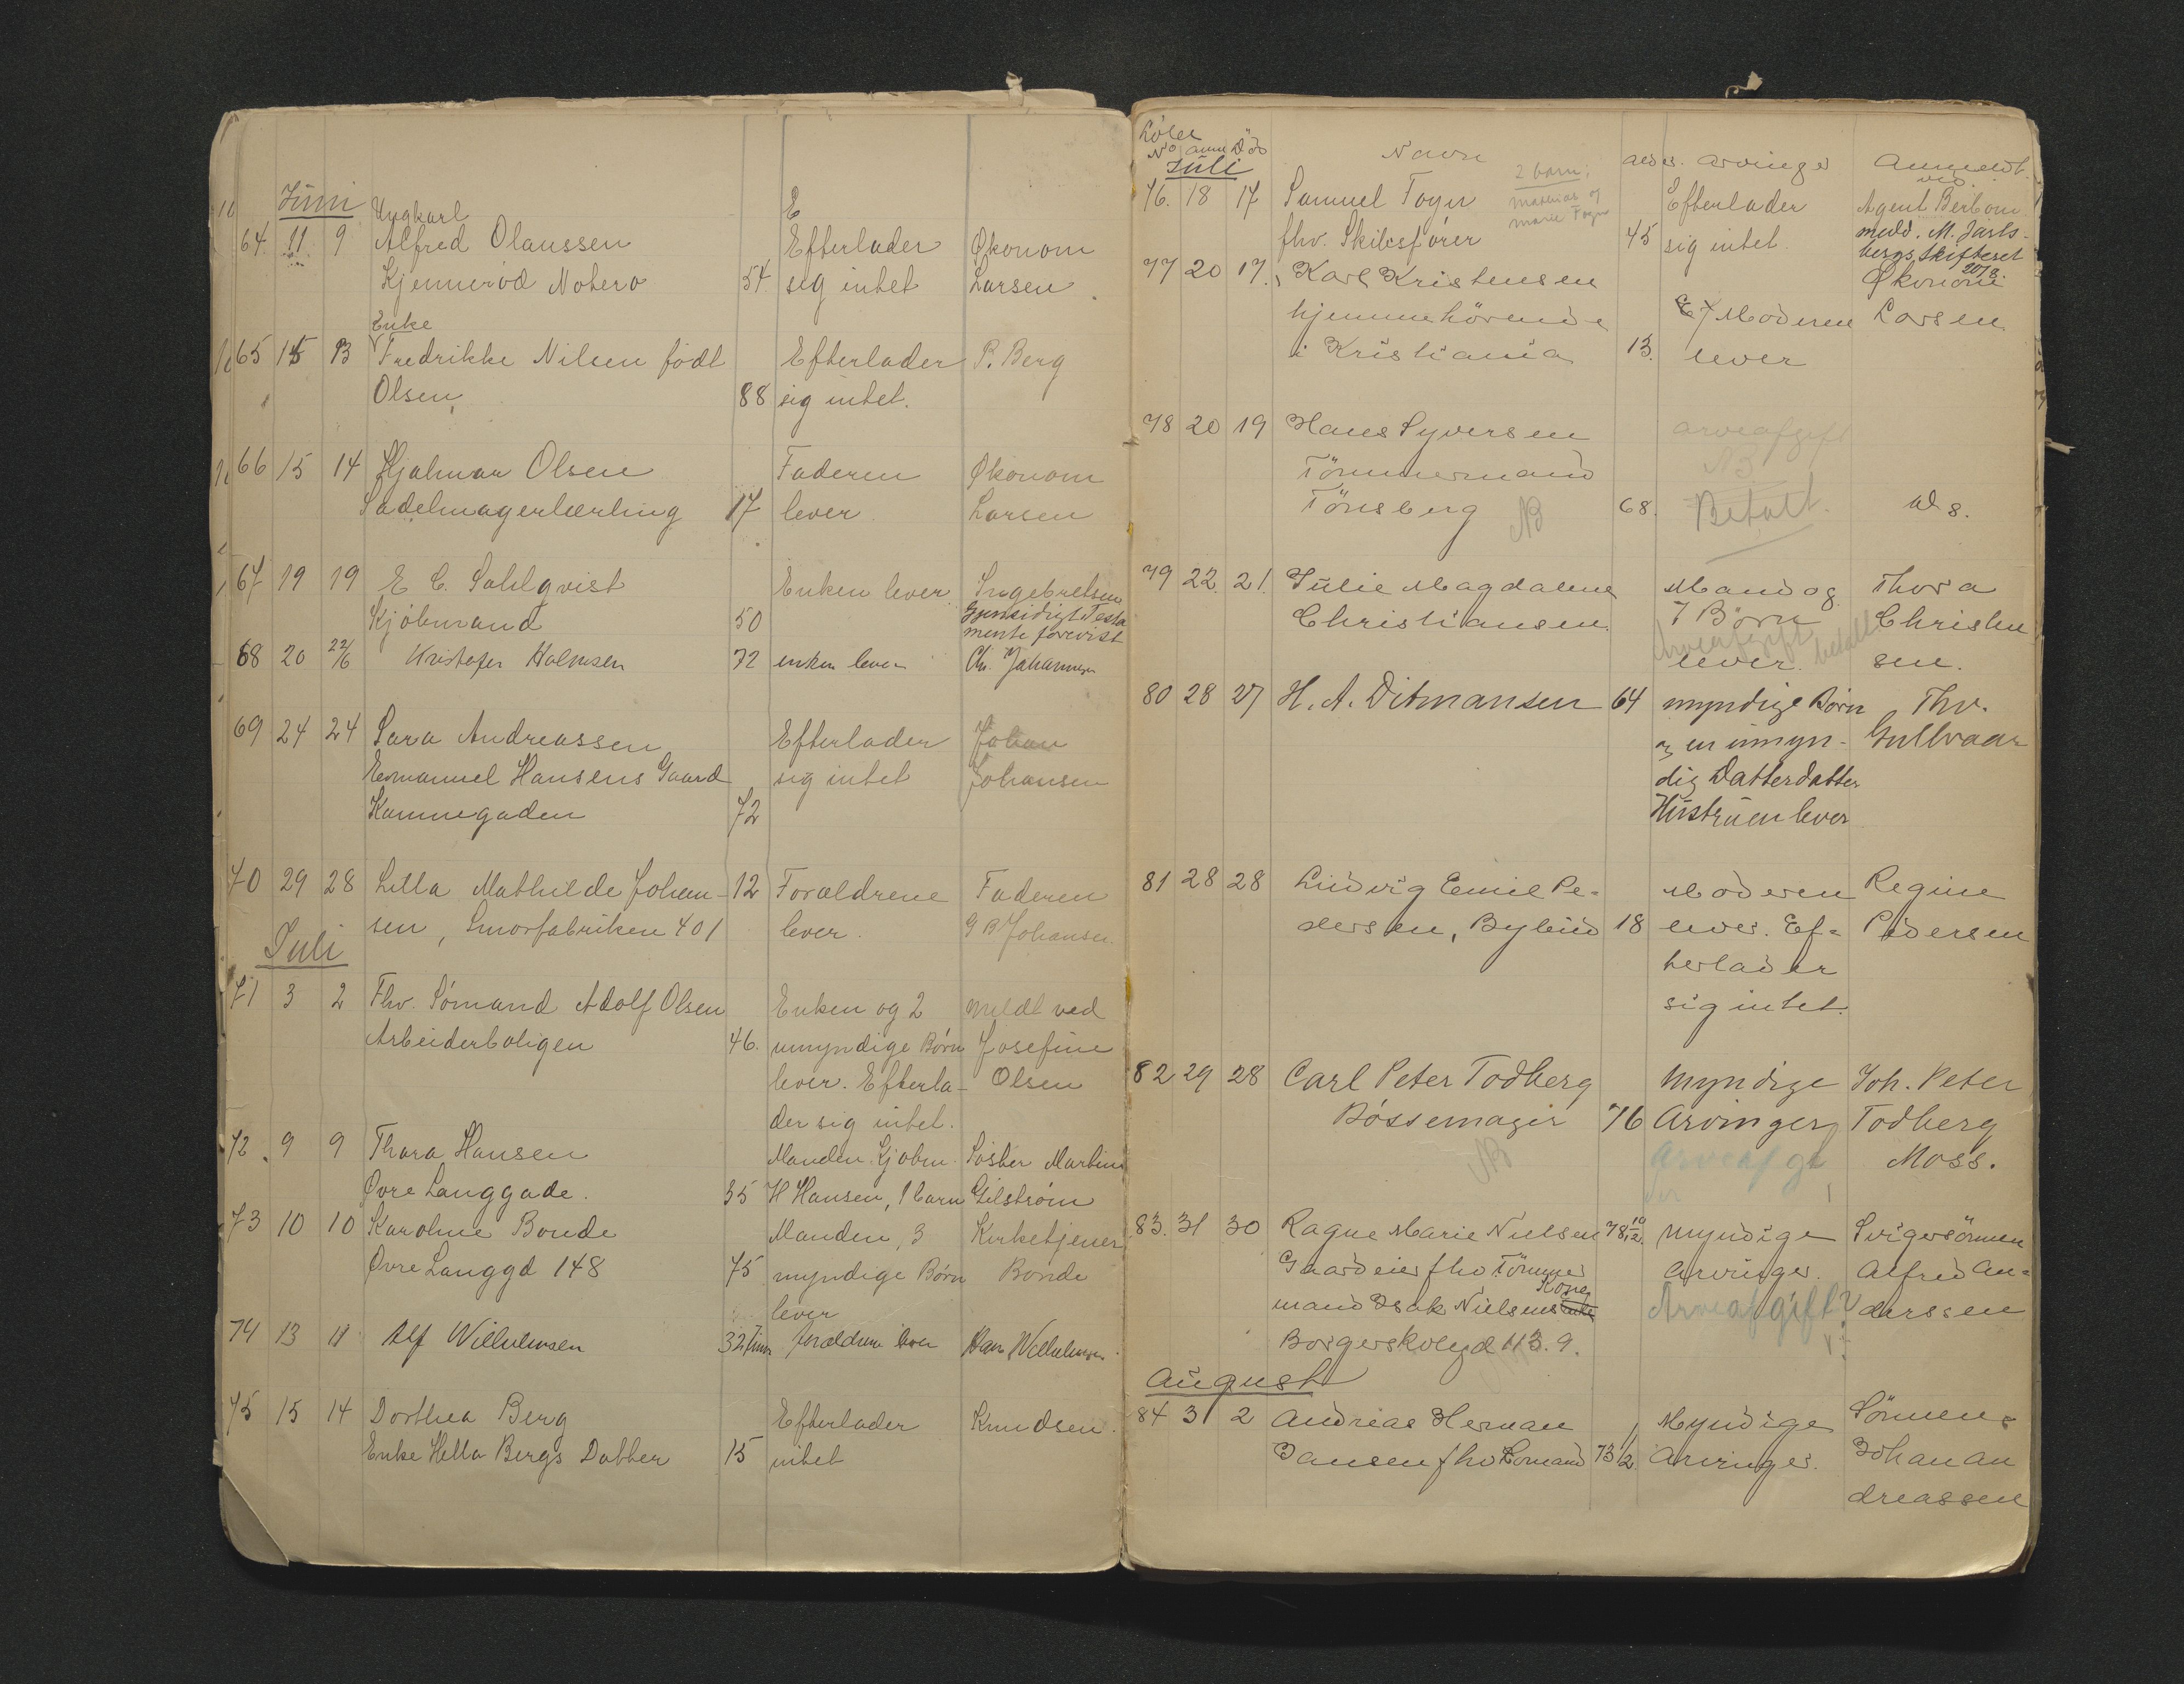 Juni
Ungkarl
64 11 9 Alfred Olaussen Efterlader Økonom
Kjennerød Noterø 54 sig intet Larsen
Enke
65 15 13 Fredrikke Nilsen født Efterlader P. Berg
Olsen 88 sig intet.
66 15 14 Hjalmar Olsen Faderen Økonom
Sadelmagerlærling 17 lever Larsen
67 19 19 E C. Sahlqvist Enken lever Ingebretsen
Kjøbmand 50 Gjensidigt Testa
mente forevist
68 20 22/6 Kristofer Holmsen 72 enken lever Chr. Johannesen
69 24 24 Sara Andreassen Efterlader
Emanuel Hansens Gaard sig intet Johansen
Kammegaden 72
70 29 28 Lilla Mathilde Johan- 12 Forældrene Faderen
sen, Smørfabriken 401 lever. G B Johansen.
Juli
71 3 2 Fhv. Sømand Adolf Olsen Enken og 2 meldt ved
Arbeiderboligen 46. umyndige Børn Josefine
lever. Efterla- Olsen
der sig intet.
72 9 9 Thora Hansen Manden Kjøbm. Søster Martine
Øvre Langgade. 35 H Hansen, 1 barn Gilstrøm
73 10 10 Karoline Bonde Manden, 3 Kirketjener
Øvre Langgd 148 75 myndige Børn Bonde
lever
74 13 11 Alf Willulmsen forældrene lever Hans Willulmsen
75 15 14 Dorthea Berg Efterlader Knudsen.
Enke Hella Bergs Datter 15 intet
Löbe
No anm Död Navn alder. arvinger Anmeldt
Juli 2 barn: ved.
76. 18 17 Samuel Foyn Mathias og Efterlader Agent Berbom
fhv. Skibsfører Marie Foyn 45 sig intet. meld. M. Jarls-
bergs Skifteret
20/8.
77 20 17. Karl Kristensen Økonom
hjemmehörende Moderen Larsen
i Kristiania 13. lever
78 20 19 Hans Syversen arveafgift
Tömmermand NB
Tönsberg NB 68. Betalt. ds.
79 22 21. Julie Magdalene Mand og Thora
Christiansen. 7 Börn Christen
Arveafgift betalt
lever. sen.
80 28 27 H. A. Ditmansen 64 myndige Börn Thv.
og en umyn- Gullvaar
dig Datterdatter
Hustruen lever
81 28 28 Ludvig Emil Pe= Moderen Regine
dersen, Bybud 18 lever. Ef= Pedersen
terlader
sig intet.
82 29 28 Carl Peter Todberg Myndige Joh. Peter
Bössemager 76 Arvinger Todberg
NB Arveafgi Moss.
83. 31 30 Ragne Marie Nielsen 78 10/12. Myndige Svigersönnen
Gaardeier fhv Tömmer Arvinger. Alfred An=
Kone
mand Isak Nielsens Enke Arveafgift? derssen
Borgerskolegd 113. 9.
August
84 31 2 Andreas Herman Myndige Sönnen
Jansen fhv Lomand 73 1/2. Arvinger. Johan An
dreassen